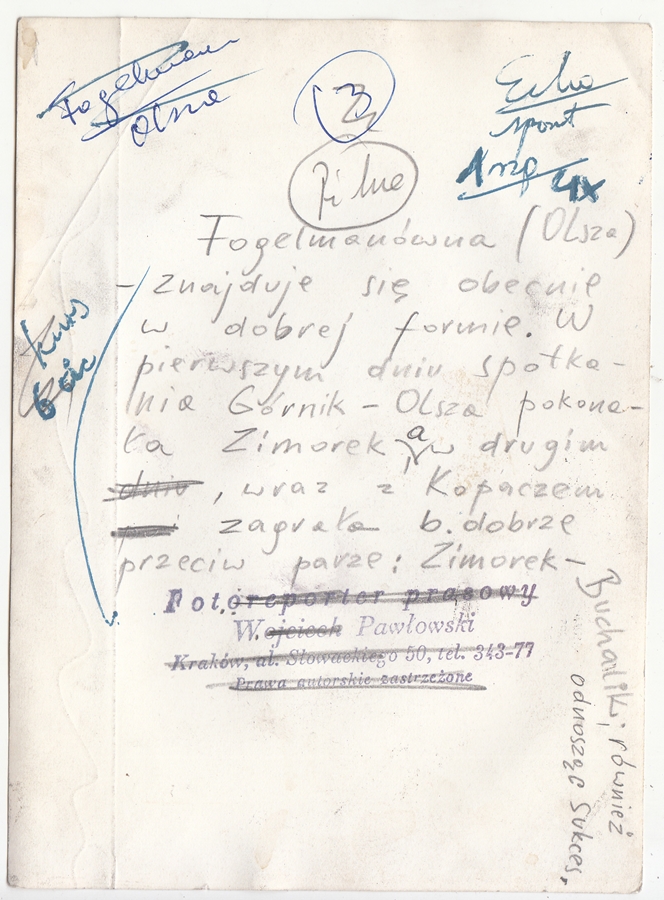 Fogelman
Olsza
3
Pilne
Echo
sport
1 szp 4x
Fogelmanówna (Olsza)
- znajduje się obecnie
w dobrej formie. W
pierwszym dniu spotka-
nia Górnik - Olsza pokona-
ła Zimorek a w drugim
dniu, wraz z Kopaczem
zagrała b. dobrze
przeciw parze: Zimorek-
Buchalik, również
odnosząc sukces.
kurs
Fotoreporter prasowy
Wojciech Pawłowski
Kraków, al. Słowackiego 50, tel. 343-77
Prawa autorskie zastrzeżone